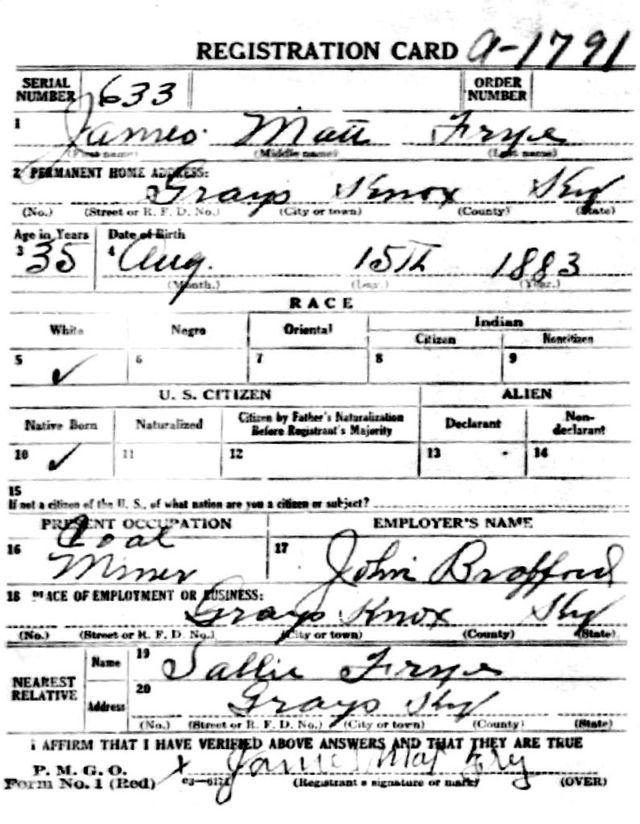 REGISTRATION CARD a-1791
SERIAL NUMBER 633 ORDER NUMBER
1 James Matt Frye
(First name) (Middle name) (Last name)
2 PERMANENT HOME ADDRESS:
Grays Knox Ky
(No.) (Street or R. F. D. No.) (City or town) (County) (State)
Age in Years Date of Birth
3 35 4 Aug. 15TH 1883
(Month.) (Day.) (Year.)
RACE
White Negro Oriental Indian
Citizen Noncitizen
5 ✓ 6 7 8 9
U. S. CITIZEN ALIEN
Native Born Naturalized Citizen by Father's Naturalization Before Registrant's Majority Declarant Non-declarant
10 ✓ 11 12 13 14
15
If not a citizen of the U. S., of what nation are you a citizen or subject?
PRESENT OCCUPATION EMPLOYER'S NAME
16 Coal Miner 17 John Brafford
18 PLACE OF EMPLOYMENT OR BUSINESS:
Grays Knox Ky
(No.) (Street or R. F. D. No.) (City or town) (County) (State)
NEAREST RELATIVE
Name 19 Sallie Frye
Address 20 Grays Ky
(No.) (Street or R. F. D. No.) (City or town) (County) (State)
I AFFIRM THAT I HAVE VERIFIED ABOVE ANSWERS AND THAT THEY ARE TRUE
P. M. G. O. x James Mat Fry
Form No. 1 (Red) (Registrant's signature or mark) (OVER)